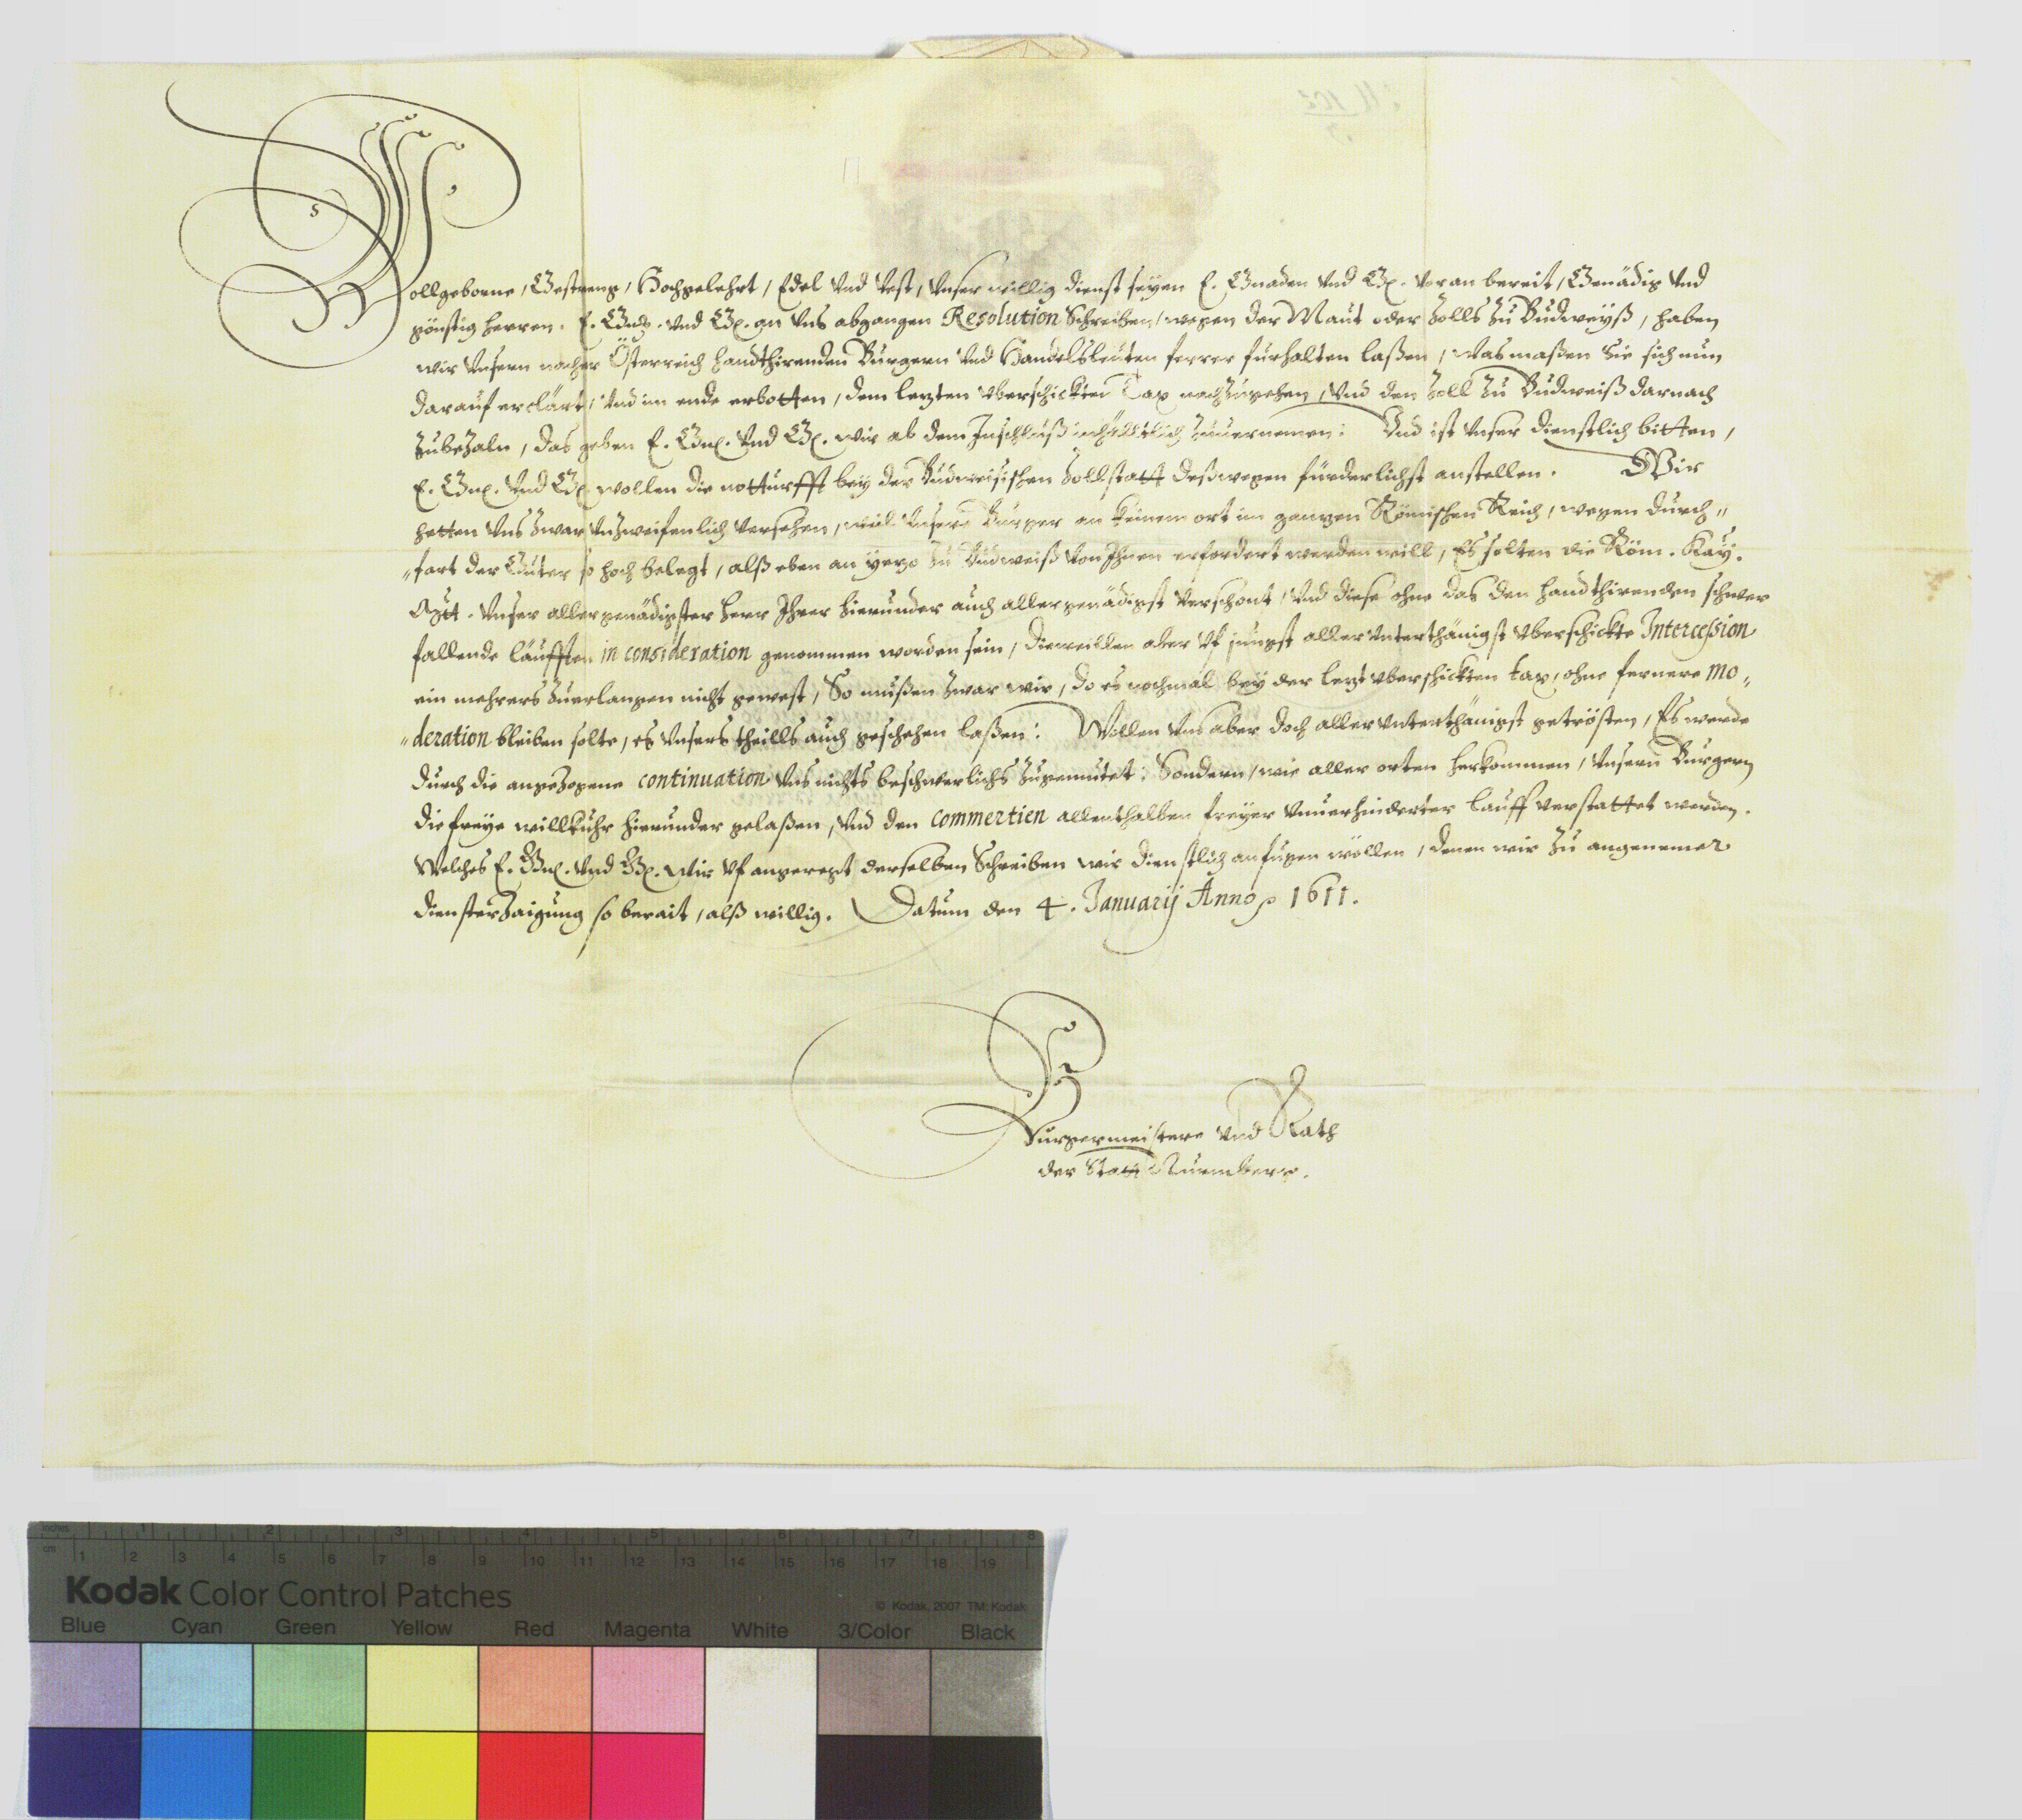 Wollgeborne, Gestreng, Hochgelehrt, Edel Vnd Vest, Vnser willig dienst seyen E. Gnaden Vnd Gl. Voran bereit, Genädig Vnd
gönstig herren. E. Gnd. Vnd Gl. an Vns abgangen Resolution Schreiben, wegen der Maut oder Zolls zu Budweyß, haben
wir Vnsern nacher Österreich handthirenden Burgern Vnd Handelsleuten ferrer fürhalten laßen, was maßen Sie sich nun
darauf erclärt, Vnd im ende erbotten, dem lezten vberschickten Tax nachzugehen, Vnd den Zoll zu Budweiß darnach
zubezaln, das geben E. Gn. Vnd Gl. wir ab dem Inschluß inhältlich zuuernemen: Vnd ist Vnser dienstlich bitten,
E. Gn. Vnd Gl. wollen die notturfft bey der Budweisischen Zollstatt deßwegen fürderlichst anstellen. Wir
hetten Vns zwar Vnzweifenlich Versehen, weil Vnsere Burger an keinem ort im ganzen Römischen Reich, wegen durch„
„fart der Güter so hoch belegt, alß eben an yezo zu Budweiß Von Ihnen erfordert werden will, Es solten die Röm. Kay.
Mtt. Vnser allergenädigster herr Ihrer hierunder auch allergenädigst Verschont, Vnd diese ohne das den handthirenden schwer
fallende läufften in consideration genommen worden sein, dieweillen aber Vf jungst aller Vnterthänigst vberschickte Intercession
ein mehrers zuerlangen nicht gewest, So mußen zwar wir, do es nochmal bey der lezt vberschickten tax, ohne fernere mo„
„deration bleiben solte, es Vnsers theills auch geschehen laßen: Wollen Vns aber doch aller Vnterthänigst getrösten, Es werde
durch die angezogene continuation Vns nichts beschwerlichs zugemutet: Sondern, wie aller orten herkommen, Vnsern Burgern
die freye willkuhr hierunder gelaßen, Vnd den commertien allenthalben freyer Vnuerhinderter lauff verstattet werden.
Welches E. Gn. Vnd Gl. wir Vf angeregt derselben Schreiben wir dienstlich anfugen wöllen, denen wir zu angenemer
diensterzaigung so berait, alß willig. Datum den 4. Januarij Anno 1611.
Burgermeistere Vnd Rath
der Statt Nurmberg.
inches 1 2 3 4 5 6 7 8
cm 1 2 3 4 5 6 7 8 9 10 11 12 13 14 15 16 17 18 19
Kodak Color Control Patches
© Kodak, 2007 TM: Kodak
Blue Cyan Green Yellow Red Magenta White 3/Color Black